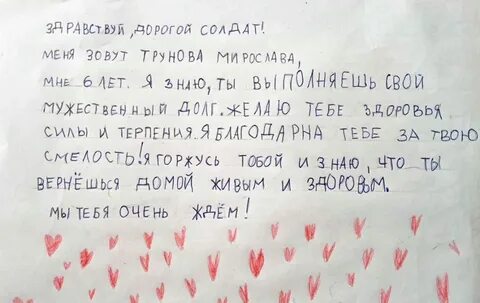 ЗДРАВСТВУЙ, ДОРОГОЙ СОЛДАТ!
МЕНЯ ЗОВУТ ТРУНОВА МИРОСЛАВА,
МНЕ 6 ЛЕТ. Я ЗНАЮ, ТЫ ВЫПОЛНЯЕШЬ СВОЙ
МУЖЕСТВЕННЫЙ ДОЛГ. ЖЕЛАЮ ТЕБЕ ЗДОРОВЬЯ
СИЛЫ И ТЕРПЕНИЯ. Я БЛАГОДАРНА ТЕБЕ ЗА ТВОЮ
СМЕЛОСТЬ! Я ГОРЖУСЬ ТОБОЙ И ЗНАЮ, ЧТО ТЫ
ВЕРНЁШЬСЯ ДОМОЙ ЖИВЫМ И ЗДОРОВЫМ.
МЫ ТЕБЯ ОЧЕНЬ ЖДЁМ!